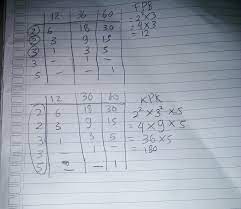 12 36 60
2 6 18 30
2 3 9 15
3 1 3 5
3 - 1 -
5 - - 1
FPB
= 2² x 3
= 4 x 3
= 12
12 36 60
2 6 18 30
2 3 9 15
3 1 3 5
3 1 -
5 - - 1
KPK
2² x 3² x 5
= 4 x 9 x 5
= 36 x 5
= 180